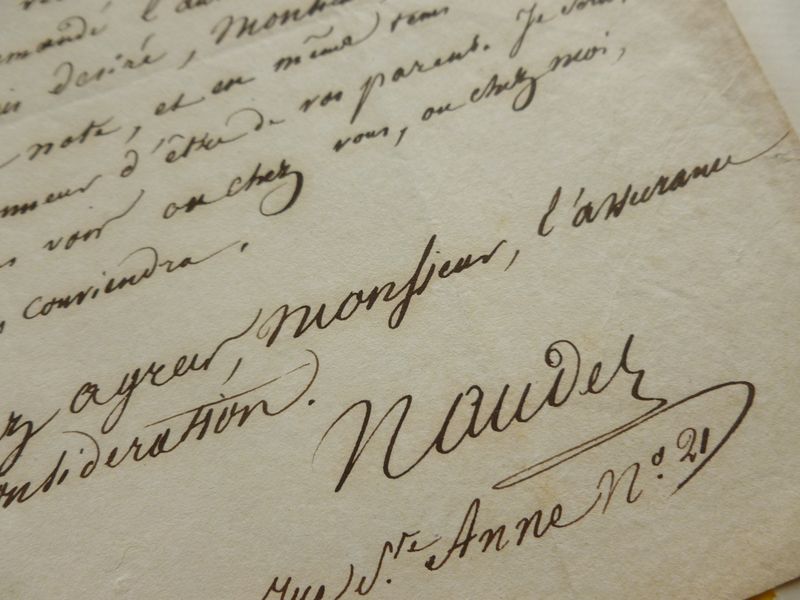 demandé l'au
desiré, Monsieur
note, et en même tems
d'être de vos parens. Je
voir ou chez vous, ou chez moi,
conviendra.
agréer, Monsieur, l'assurance
consideration.
Naudet
rue Ste Anne No. 21